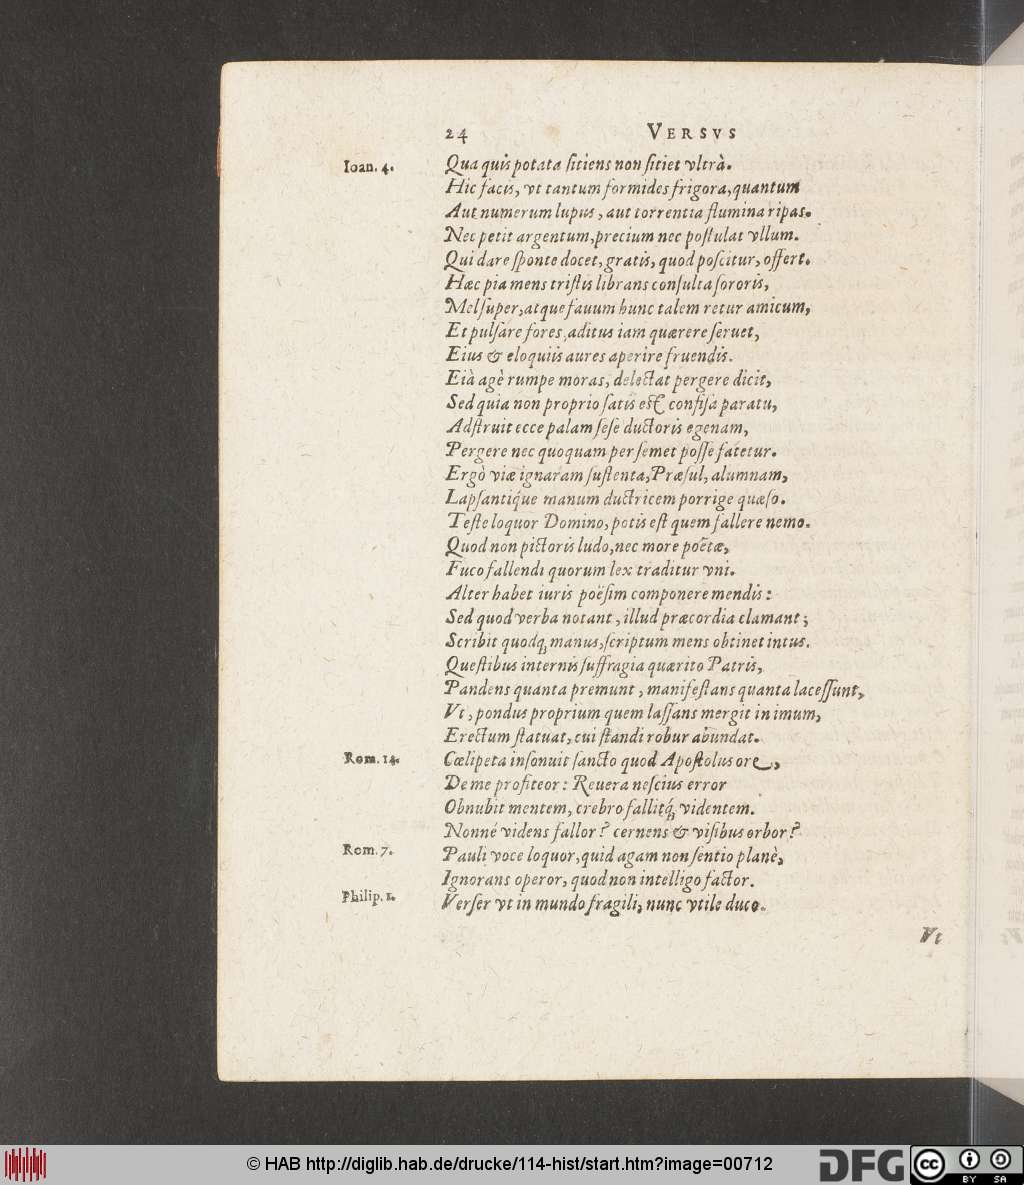 24 VERSVS
Ioan. 4. Qua quis potata sitiens non sitiet vltrà.
Hic facis, vt tantum formides frigora, quantum
Aut numerum lupus, aut torrentia flumina ripas.
Nec petit argentum, precium nec postulat vllum.
Qui dare sponte docet, gratis, quod poscitur, offert.
Hæc pia mens tristis librans consulta sororis,
Mel super, atque fauum hunc talem retur amicum,
Et pulsare fores, aditus iam quærere seruet,
Eius & eloquiis aures aperire fruendis.
Eià agè rumpe moras, delectat pergere dicit,
Sed quia non proprio satis est confisa paratu,
Adstruit ecce palam sese ductoris egenam,
Pergere nec quoquam per semet posse fatetur.
Ergò viæ ignaram sustenta, Præsul, alumnam,
Lapsantiq́ue manum ductricem porrige quæso.
Teste loquor Domino, potis est quem fallere nemo.
Quod non pictoris ludo, nec more poëtæ,
Fuco fallendi quorum lex traditur vni.
Alter habet iuris poësim componere mendis:
Sed quod verba notant, illud præcordia clamant;
Scribit quodq; manus, scriptum mens obtinet intus.
Questibus internis suffragia quærito Patris,
Pandens quanta premunt, manifestans quanta lacessunt,
Vt, pondus proprium quem lassans mergit in imum,
Erectum statuat, cui standi robur abundat.
Rom. 14. Cœlipeta insonuit sancto quod Apostolus ore,
De me profiteor: Reuera nescius error
Obnubit mentem, crebro fallitq́; videntem.
Nonné videns fallor? cernens & visibus orbor?
Rom. 7. Pauli voce loquor, quid agam non sentio planè,
Ignorans operor, quod non intelligo factor.
Philip. 1. Verser vt in mundo fragili, nunc vtile duco.
Vt
© HAB http://diglib.hab.de/drucke/114-hist/start.htm?image=00712
DFG
cc BY SA